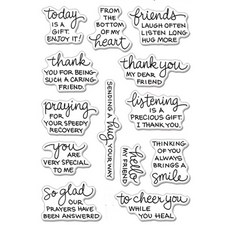 today
IS A
GIFT.
ENJOY IT!
FROM
THE
BOTTOM
OF MY
heart
friends
LAUGH OFTEN
LISTEN LONG
HUG MORE
thank
YOU FOR BEING
SUCH A CARING
FRIEND.
thank you
MY DEAR
FRIEND
praying
FOR YOUR
SPEEDY
RECOVERY
SENDING A hug YOUR WAY!
listening
IS A
PRECIOUS GIFT.
I THANK YOU.
you
ARE
VERY SPECIAL
TO ME
hello
MY FRIEND
THINKING
OF YOU
ALWAYS
BRINGS A
smile
so glad
OUR
PRAYERS HAVE
BEEN ANSWERED
to cheer you
WHILE
YOU HEAL